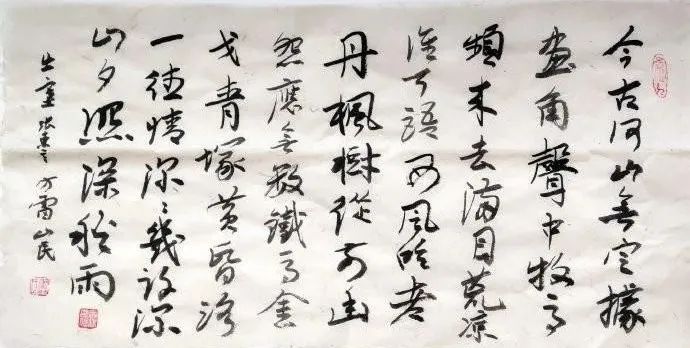 今古河山無定據
畫角聲中牧馬
頻来去滿目荒凉
誰可語西風吹老
丹楓樹從前幽
怨應無數鐵馬金
戈青塚黄昏路
一往情深〻幾許深
山夕照深秋雨
出塞 方雷山民